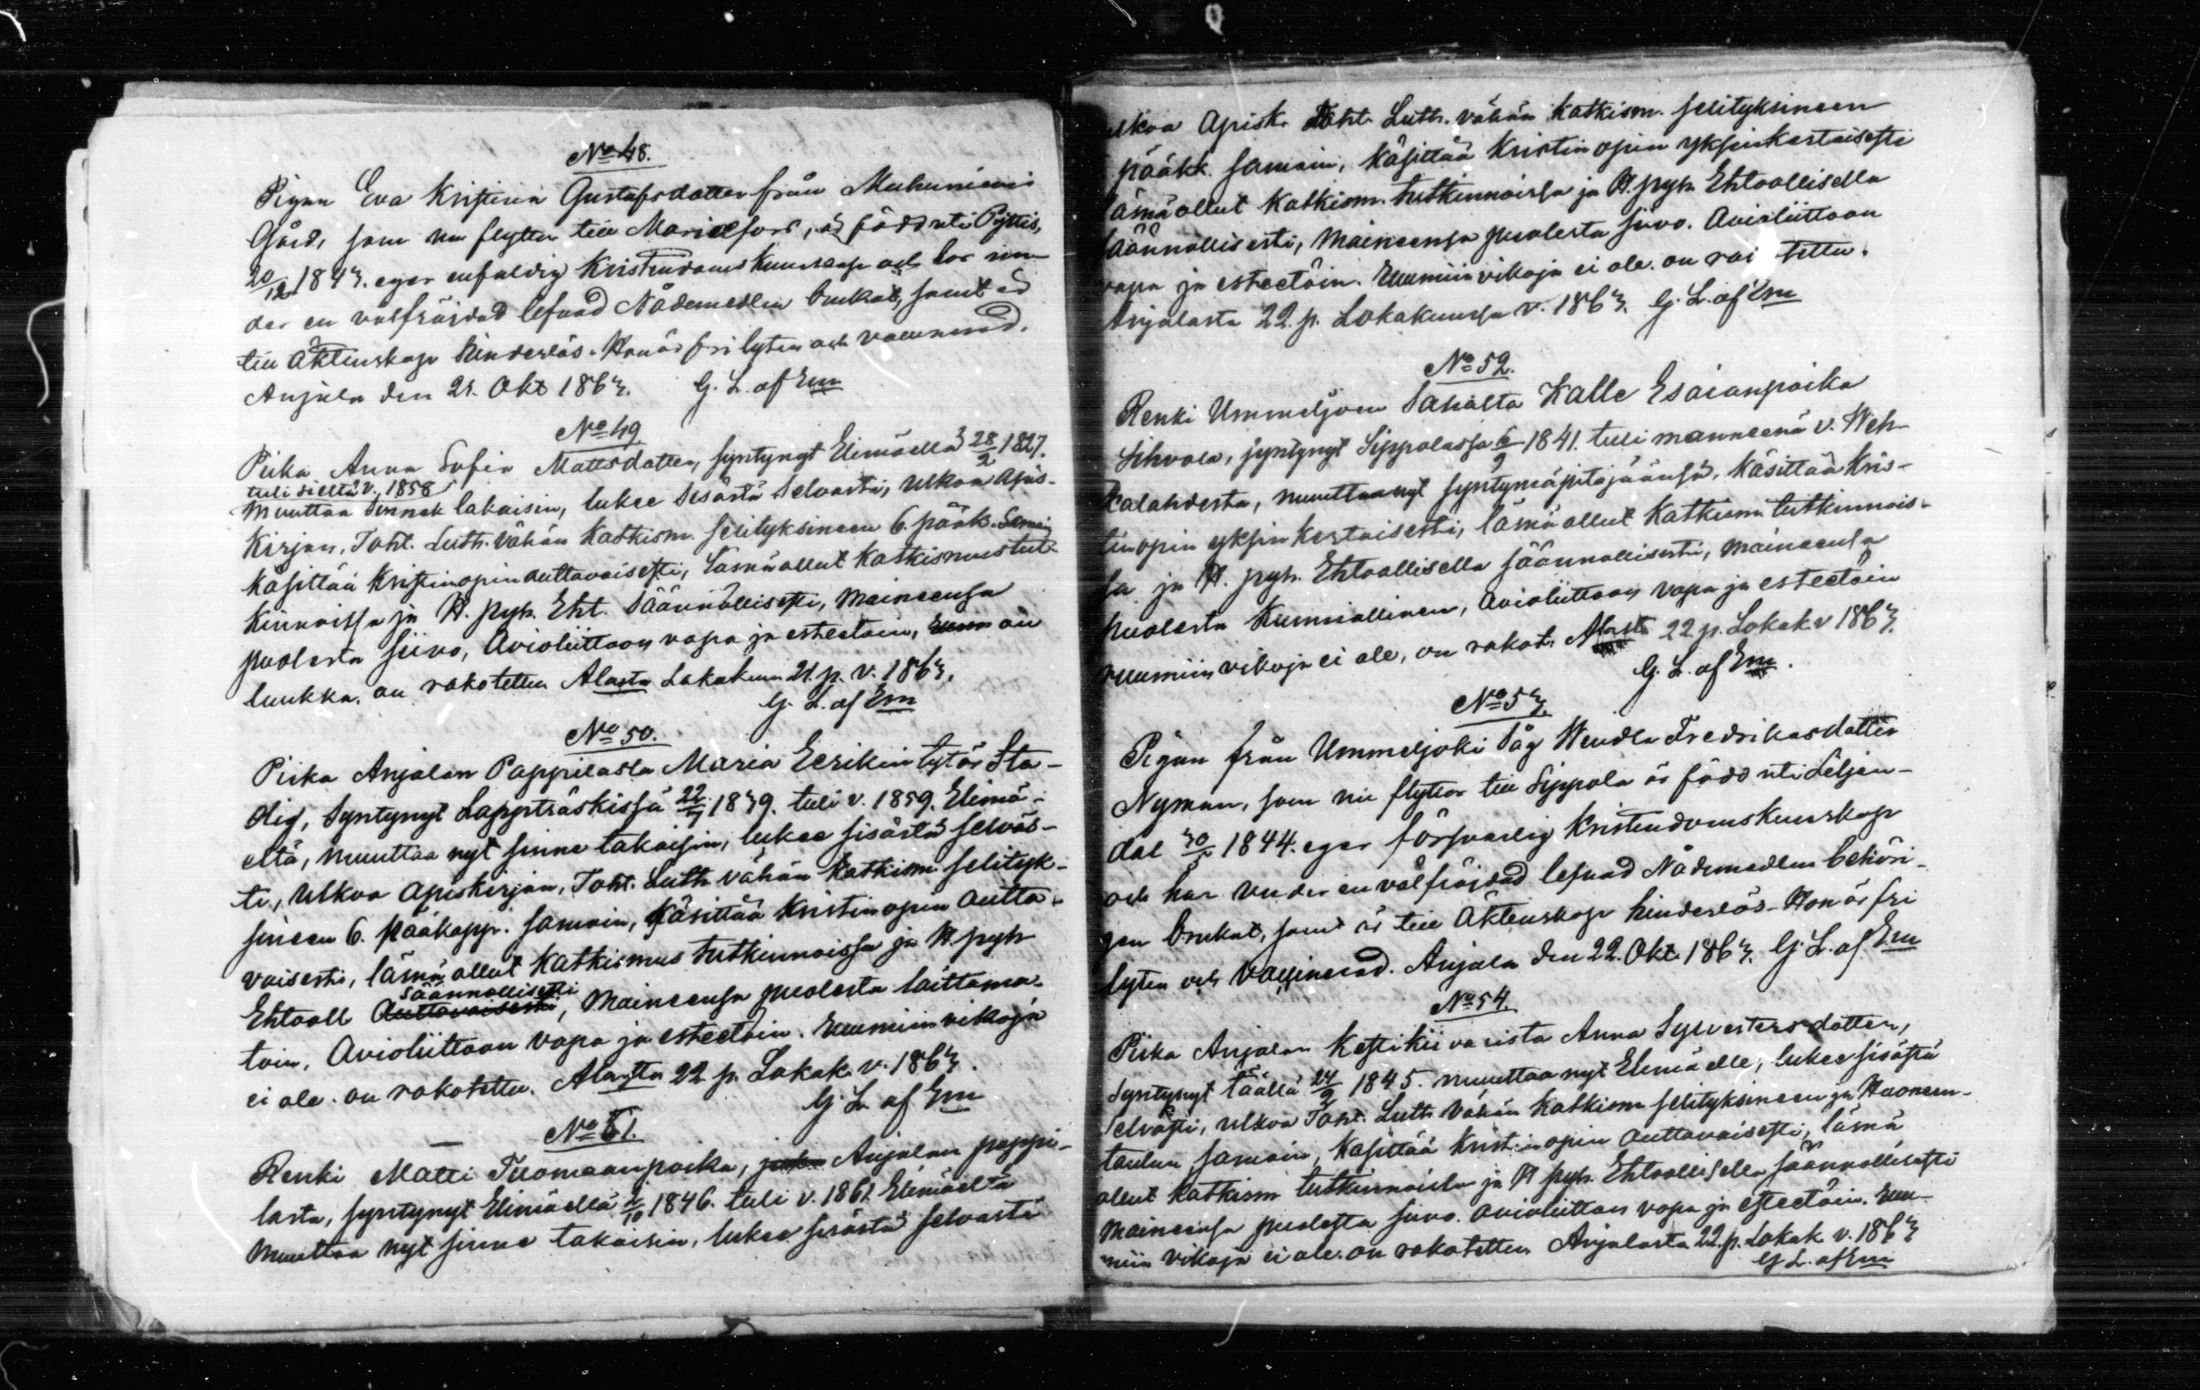 No 48.
Pigan Eva Kristina Gustafsdotter från Muhuniemi
Gård, som nu flyttar till Mariefors, är född uti Pyttis,
20/12 1843. eger enfaldig Kristendoms Kunskap och har un-
der en välfräjdad lefnad Nådemedlen brukat, samt är
till Äktenskap hinderlös. Hon är fri lyten och vaccinerad.
Anjala den 21. Okt 1863. G. L. af Em
No 49
Piika Anna Sofia Mattsdotter, syntynyt Elimäellä 28/2 1827.
tuli sieltä v. 1858
Muuttaa sinnek takaisin, lukee sisästä selvästi, ulkoa Apis-
Kirjan, Toht. Luth. Vähän Katkism. selityksineen 6. pääk. samoin
Käsittää Kristinopin auttavaisesti, läsnä ollut Katkismustut-
kinnoissa ja H. pyh. Eht. säännöllisesti, maineensa
puolesta siivo, Avioliittoon vapa ja esteetöin, on
luukka. on rokotettu Alasta Lokakuun 21. p. v. 1863.
G. L. af Em
No 50.
Piika Anjalan Pappilasta Maria Eerikin tytär Sta-
dig, Syntynyt Lappträskissä 22/ 1839. tuli v. 1859. Elimä-
eltä, muuttaa nyt sinne takaisin, lukee sisästä selväs-
ti, ulkoa apiskirjan, Toht. Luth. vähän Katkism selityk-
sineen 6. pääkapp. samoin, Käsittää Kristinopin autta-
vaisesti, läsnä ollut Katkismus tutkinnoissa ja H. pyh
säännöllisesti
Ehtooll Auttavaisesti, Maineensa puolesta laittama-
toin, Avioliittoon vapa ja esteetöin. Ruumiin vikoja
ei ole. on rokotettu. Alasta 22 p. Lokak. v. 1863.
G. L. af Em
No 51.
Renki Matti Tuomaanpoika, Anjalan pappi-
lasta, syntynyt Elimäellä /10 1846. tuli v. 1861 Elimäeltä
Muuttaa nyt sinne takaisin, lukee sisästä selvästi
ulkoa Apisk. Toht. Luth. vähän Katkism. selityksineen
pääkk. samoin, Käsittää Kristin opin yksinkertaisesti
läsnä ollut Katkism. tutkinnoissa ja H. pyh Ehtoollisella
säännöllisesti, Maineensa puolesta siivo. Avioliittoon
vapa ja esteetöin. Ruumiin vikoja ei ole. on rokotettu.
Anjalasta 22. p. Lokakuussa v. 1863. G. L. af Em
No 52.
Renki Ummeljoen Sahalta Kalle Esaianpoika
Sihvola, syntynyt Sippolassa 6/9 1841. tuli menneenä v. Weh-
kalahdesta, muuttaa nyt syntymäpitäjäänsä, Käsittää Kris-
tinopin yksinkertaisesti, läsnä ollut Katkism tutkinnois-
sa ja H. pyh. Ehtoollisella säännöllisesti, maineensa
puolesta Kunniallinen, avioliittoon vapa ja esteetöin
ruumiin vikoja ei ole, on rokot. Alasta 22 p. Lokak v 1863.
G. L. af Em.
No 53.
Pigan från Ummeljoki Såg Wendla Fredrikasdotter
Nyman, som nu flyttar till Sippola är född uti Liljen-
dal 30/ 1844. eger försvarlig Kristendomskunskap
och har under en välfräjdad lefnad Nådemedlen behöri-
gen brukat, samt är till Äktenskap hinderlös. Hon är fri
lyten och vaccinerad. Anjala den 22. Okt. 1863. G. L. af Em
No 54.
Piika Anjalan Kestikiivarista Anna Sylvestersdotter,
syntynyt täällä 24/9 1845. muuttaa nyt Elimäelle, lukee sisästä
selvästi, ulkoa Toht. Luth Vähän Katkism selityksineen ja Huoneen-
taulun samoin, Käsittää Kristinopin auttavaisesti, läsnä
ollut Katkism tutkinnoissa ja H pyh. Ehtoollisella säännöllisesti
Maineensa puolesta siivo. avioliittoon vapa ja esteetöin. Ruu-
miin vikoja ei ole. on rokotettu Anjalasta 22. p. Lokak v. 1863
G L. af Em